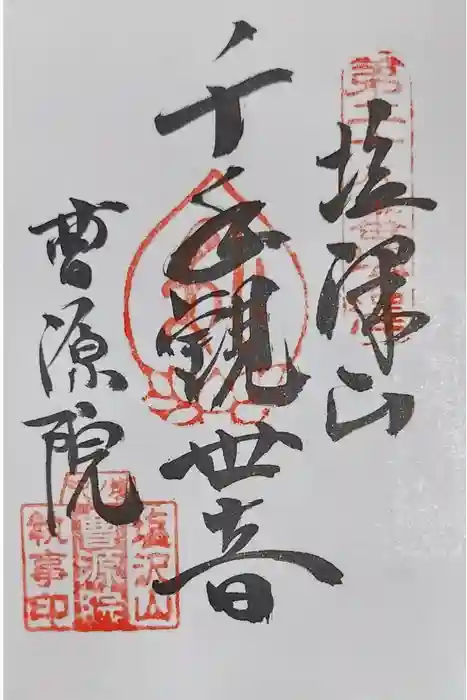 塩澤山
千手観世音
曹源院
塩沢山
曹源院
執事印